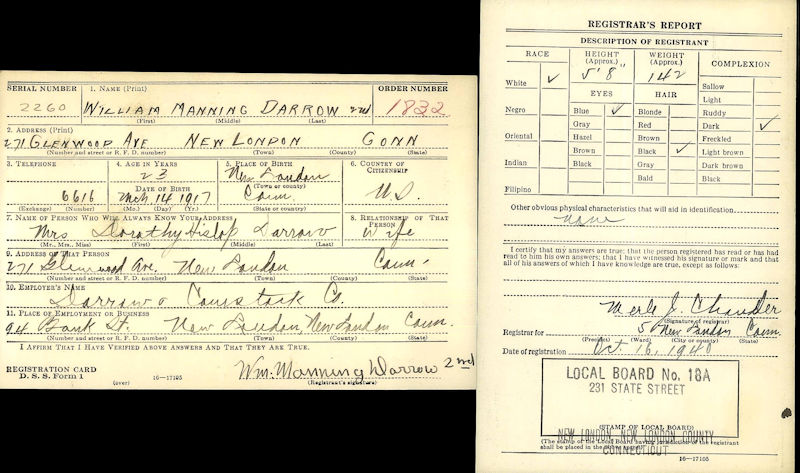 SERIAL NUMBER
1. NAME (Print)
ORDER NUMBER
2260
WILLIAM MANNING DARROW 2nd
1832
(First) (Middle) (Last)
2. ADDRESS (Print)
271 GLENWOOD AVE NEW LONDON CONN
(Number and street or R. F. D. number) (Town) (County) (State)
3. TELEPHONE
4. AGE IN YEARS
5. PLACE OF BIRTH
6. COUNTRY OF CITIZENSHIP
23
New London
(Town or county)
DATE OF BIRTH
6616
Mch. 14 1917
Conn.
U.S.
(Exchange) (Number)
(Mo.) (Day) (Yr.)
(State or country)
7. NAME OF PERSON WHO WILL ALWAYS KNOW YOUR ADDRESS
8. RELATIONSHIP OF THAT PERSON
Mrs Dorothy Hislop Darrow
Wife
(Mr., Mrs., Miss) (First) (Middle) (Last)
9. ADDRESS OF THAT PERSON
271 Glenwood Ave. New London Conn.
(Number and street or R. F. D. number) (Town) (County) (State)
10. EMPLOYER'S NAME
Darrow & Comstock Co.
11. PLACE OF EMPLOYMENT OR BUSINESS
94 Bank St. New London, New London Conn.
(Number and street or R. F. D. number) (Town) (County) (State)
I AFFIRM THAT I HAVE VERIFIED ABOVE ANSWERS AND THAT THEY ARE TRUE.
REGISTRATION CARD
D. S. S. Form 1
(over)
16—17105
Wm. Manning Darrow 2nd
(Registrant's signature)
REGISTRAR'S REPORT
DESCRIPTION OF REGISTRANT
RACE
HEIGHT
(Approx.)
WEIGHT
(Approx.)
COMPLEXION
White ✓
5'8"
142
Sallow
EYES
HAIR
Light
Negro
Blue ✓
Blonde
Ruddy
Gray
Red
Dark ✓
Oriental
Hazel
Brown
Freckled
Brown
Black ✓
Light brown
Indian
Black
Gray
Dark brown
Bald
Black
Filipino
Other obvious physical characteristics that will aid in identification
none
I certify that my answers are true; that the person registered has read or has had
read to him his own answers; that I have witnessed his signature or mark and that
all of his answers of which I have knowledge are true, except as follows:
Merle J.
(Signature of registrar)
Registrar for 5 New London Conn.
(Precinct) (Ward) (City or county) (State)
Date of registration Oct. 16, 1940
LOCAL BOARD No. 18A
231 STATE STREET
(STAMP OF LOCAL BOARD)
NEW LONDON, NEW LONDON COUNTY
(The stamp of the Local Board having jurisdiction of the registrant
shall be placed in the above space)
CONNECTICUT
16—17105